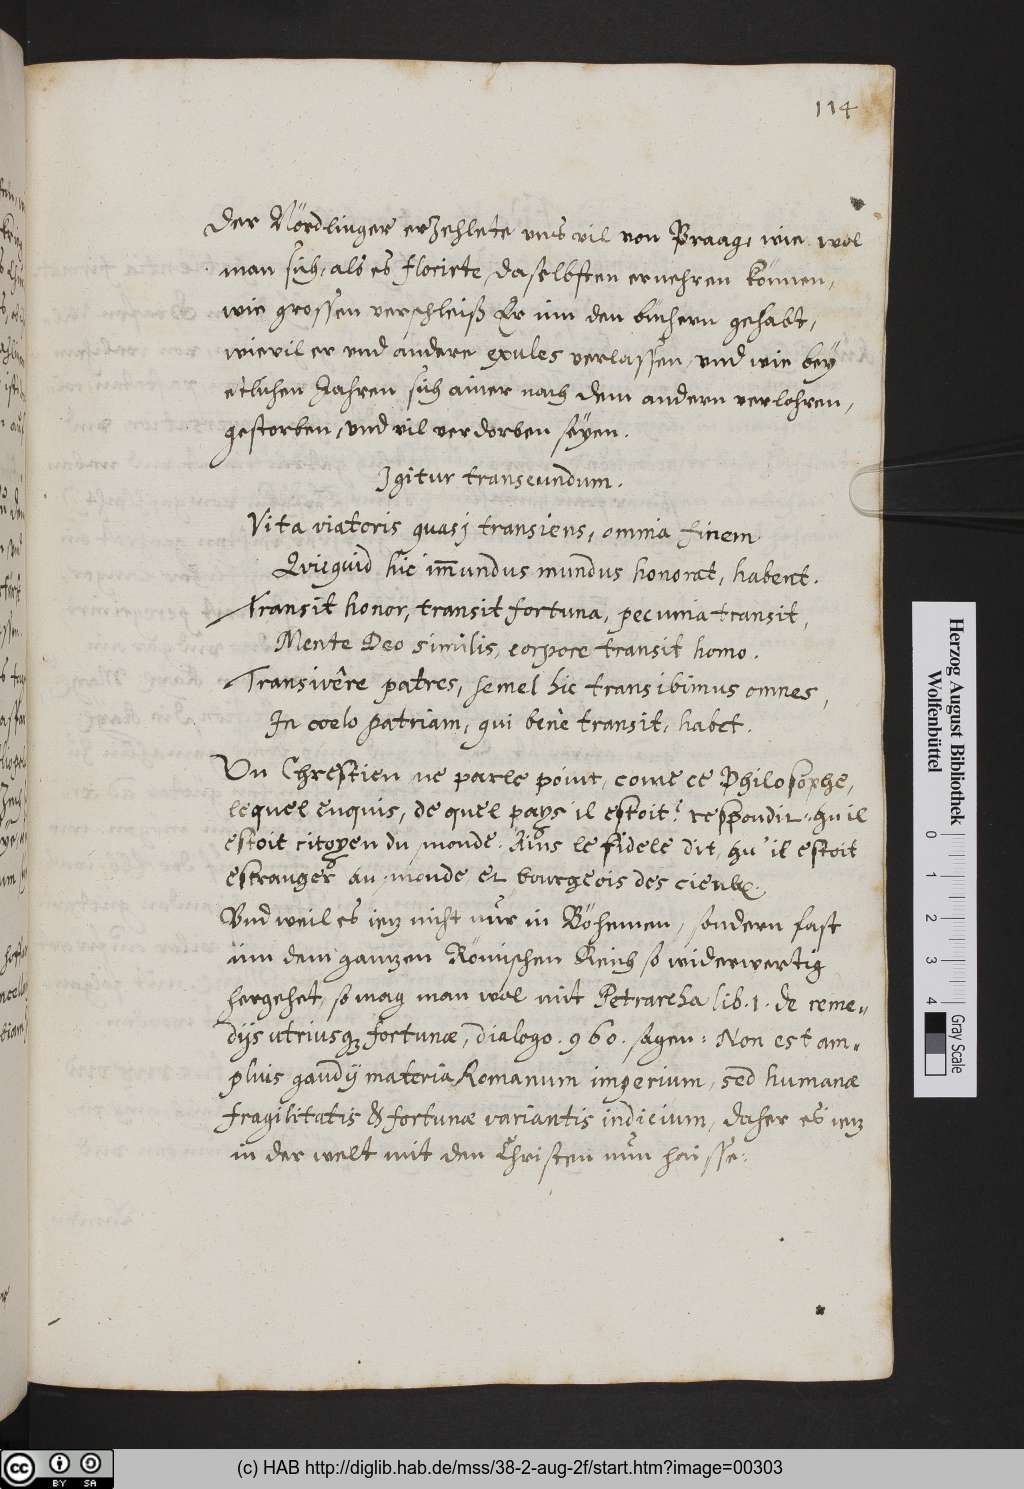 114
Der Nördlinger erzehlete vns vil von Praag, wie wol
man sich, als es florirte, daselbsten ernehren können,
wie grossen verschleiß Er inn den büchern gehabt,
wievil er vnd andere exules verlassen, vnd wie bey
etlichen Jahren sich ainer nach dem andern verlohren,
gestorben, vnd vil verdorben seyen.
Igitur transeundum.
Vita viatoris quasj transiens, omnia finem
Qvicquid hîc im̄undus mundus honorat, habent.
Transit honor, transit fortuna, pecunia transit,
Mente Deo similis, corpore transit homo.
Transivêre patres, semel hic transibimus omnes,
In coelo patriam, qui benè transit, habet.
Un Chrestien ne parle point, come ce Philosophe,
lequel enquis, de quel pays il estoit? respondit: qu il
estoit citoyen du monde. Ains le fidele dit, qu' il estoit
estranger au monde et bourgeois des cieulx.
Vnd weil es ietz nicht nur in Böhemen, sondern fast
inn dem gantzen Römischen Reich so widerwertig
hergehet, so mag man wol mit Petrarcha lib. 1. de reme„
dijs utriusq; fortunæ, dialogo. 960. sagen: Non est am„
plius gaudij materia Romanum imperium, sed humanæ
fragilitatis & fortunæ variantis indicium, daher es ietz
in der welt mit den Christen nun haisse:
Herzog August Bibliothek
Wolfenbüttel
0 1 2 3 4
Gray Scale
cc BY SA
(c) HAB http://diglib.hab.de/mss/38-2-aug-2f/start.htm?image=00303